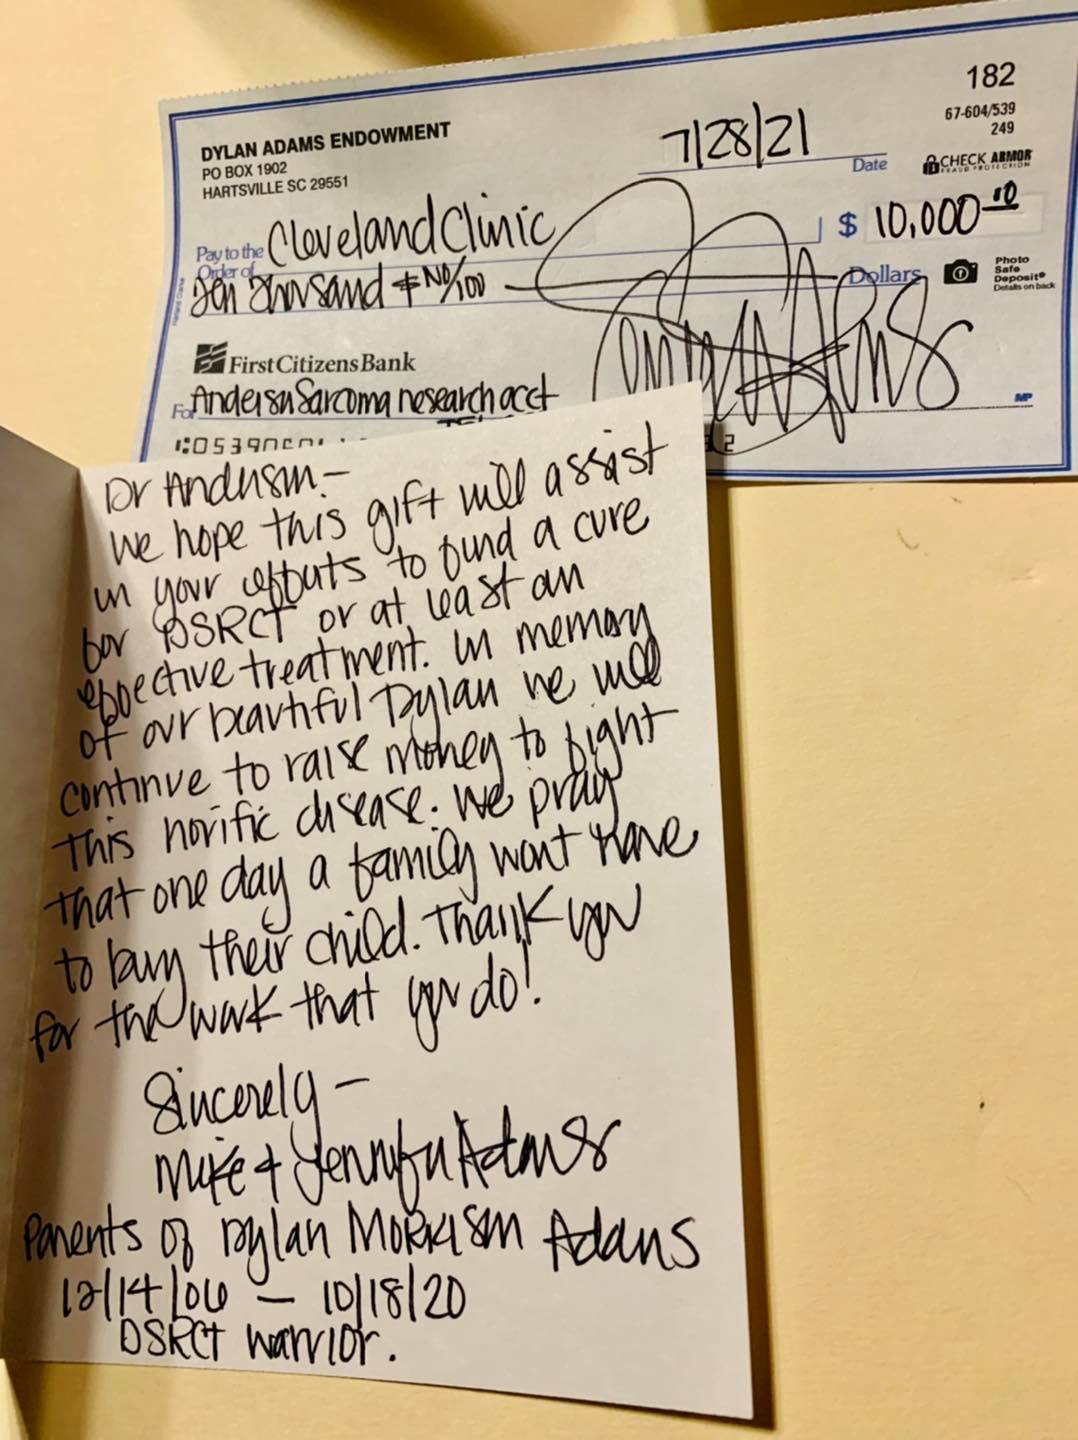 182
67-604/539
249
DYLAN ADAMS ENDOWMENT
PO BOX 1902
HARTSVILLE SC 29551
7/28/21
Date
CHECK ARMOR
FRAUD PROTECTION
Pay to the
Order of
Cleveland Clinic
$ 10,000
Ten Thousand & No/100
Dollars
Photo
Safe
Deposit®
Details on back
First Citizens Bank
For Anderson Sarcoma research acct
MP
Dr Anderson -
We hope this gift will assist
in your efforts to find a cure
for DSRCT or at least an
effective treatment. In memory
of our beautiful Dylan we will
continue to raise money to fight
this horrific disease. We pray
that one day a family wont have
to bury their child. Thank you
for the work that you do!
Sincerely -
Mike & Jennifer Adams
Parents of Dylan Morrison Adams
12/14/06 - 10/18/20
DSRCT warrior.